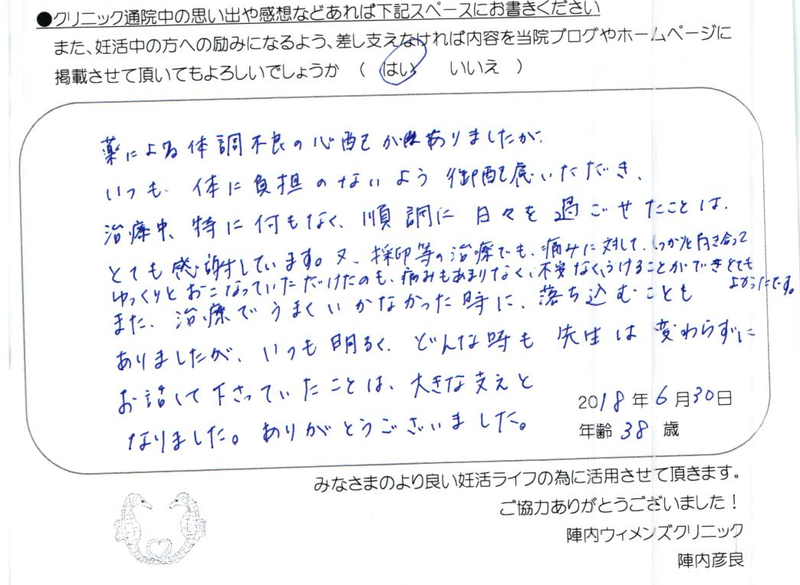 ●クリニック通院中の思い出や感想などあれば下記スペースにお書きください
また、妊活中の方への励みになるよう、差し支えなければ内容を当院ブログやホームページに
掲載させて頂いてもよろしいでしょうか （ はい　いいえ ）
薬による体調不良の心配がありましたが、
いつも、体に負担のないよう御配慮いただき、
治療中、特に何もなく、順調に日々を過ごせたことは、
とても感謝しています。又、採卵等の治療でも、痛みに対して、しっかりと向き合って
ゆっくりとおこなっていただけたのも、痛みもあまりなく、不安なく、うけることができとても
よかったです。
また、治療でうまくいかなかった時に、落ち込むことも
ありましたが、いつも明るく、どんな時も先生は変わらずに
お話して下さっていたことは、大きな支えと
なりました。ありがとうございました。
2018年6月30日
年齢 38 歳
みなさまのより良い妊活ライフの為に活用させて頂きます。
ご協力ありがとうございました！
陣内ウィメンズクリニック
陣内彦良